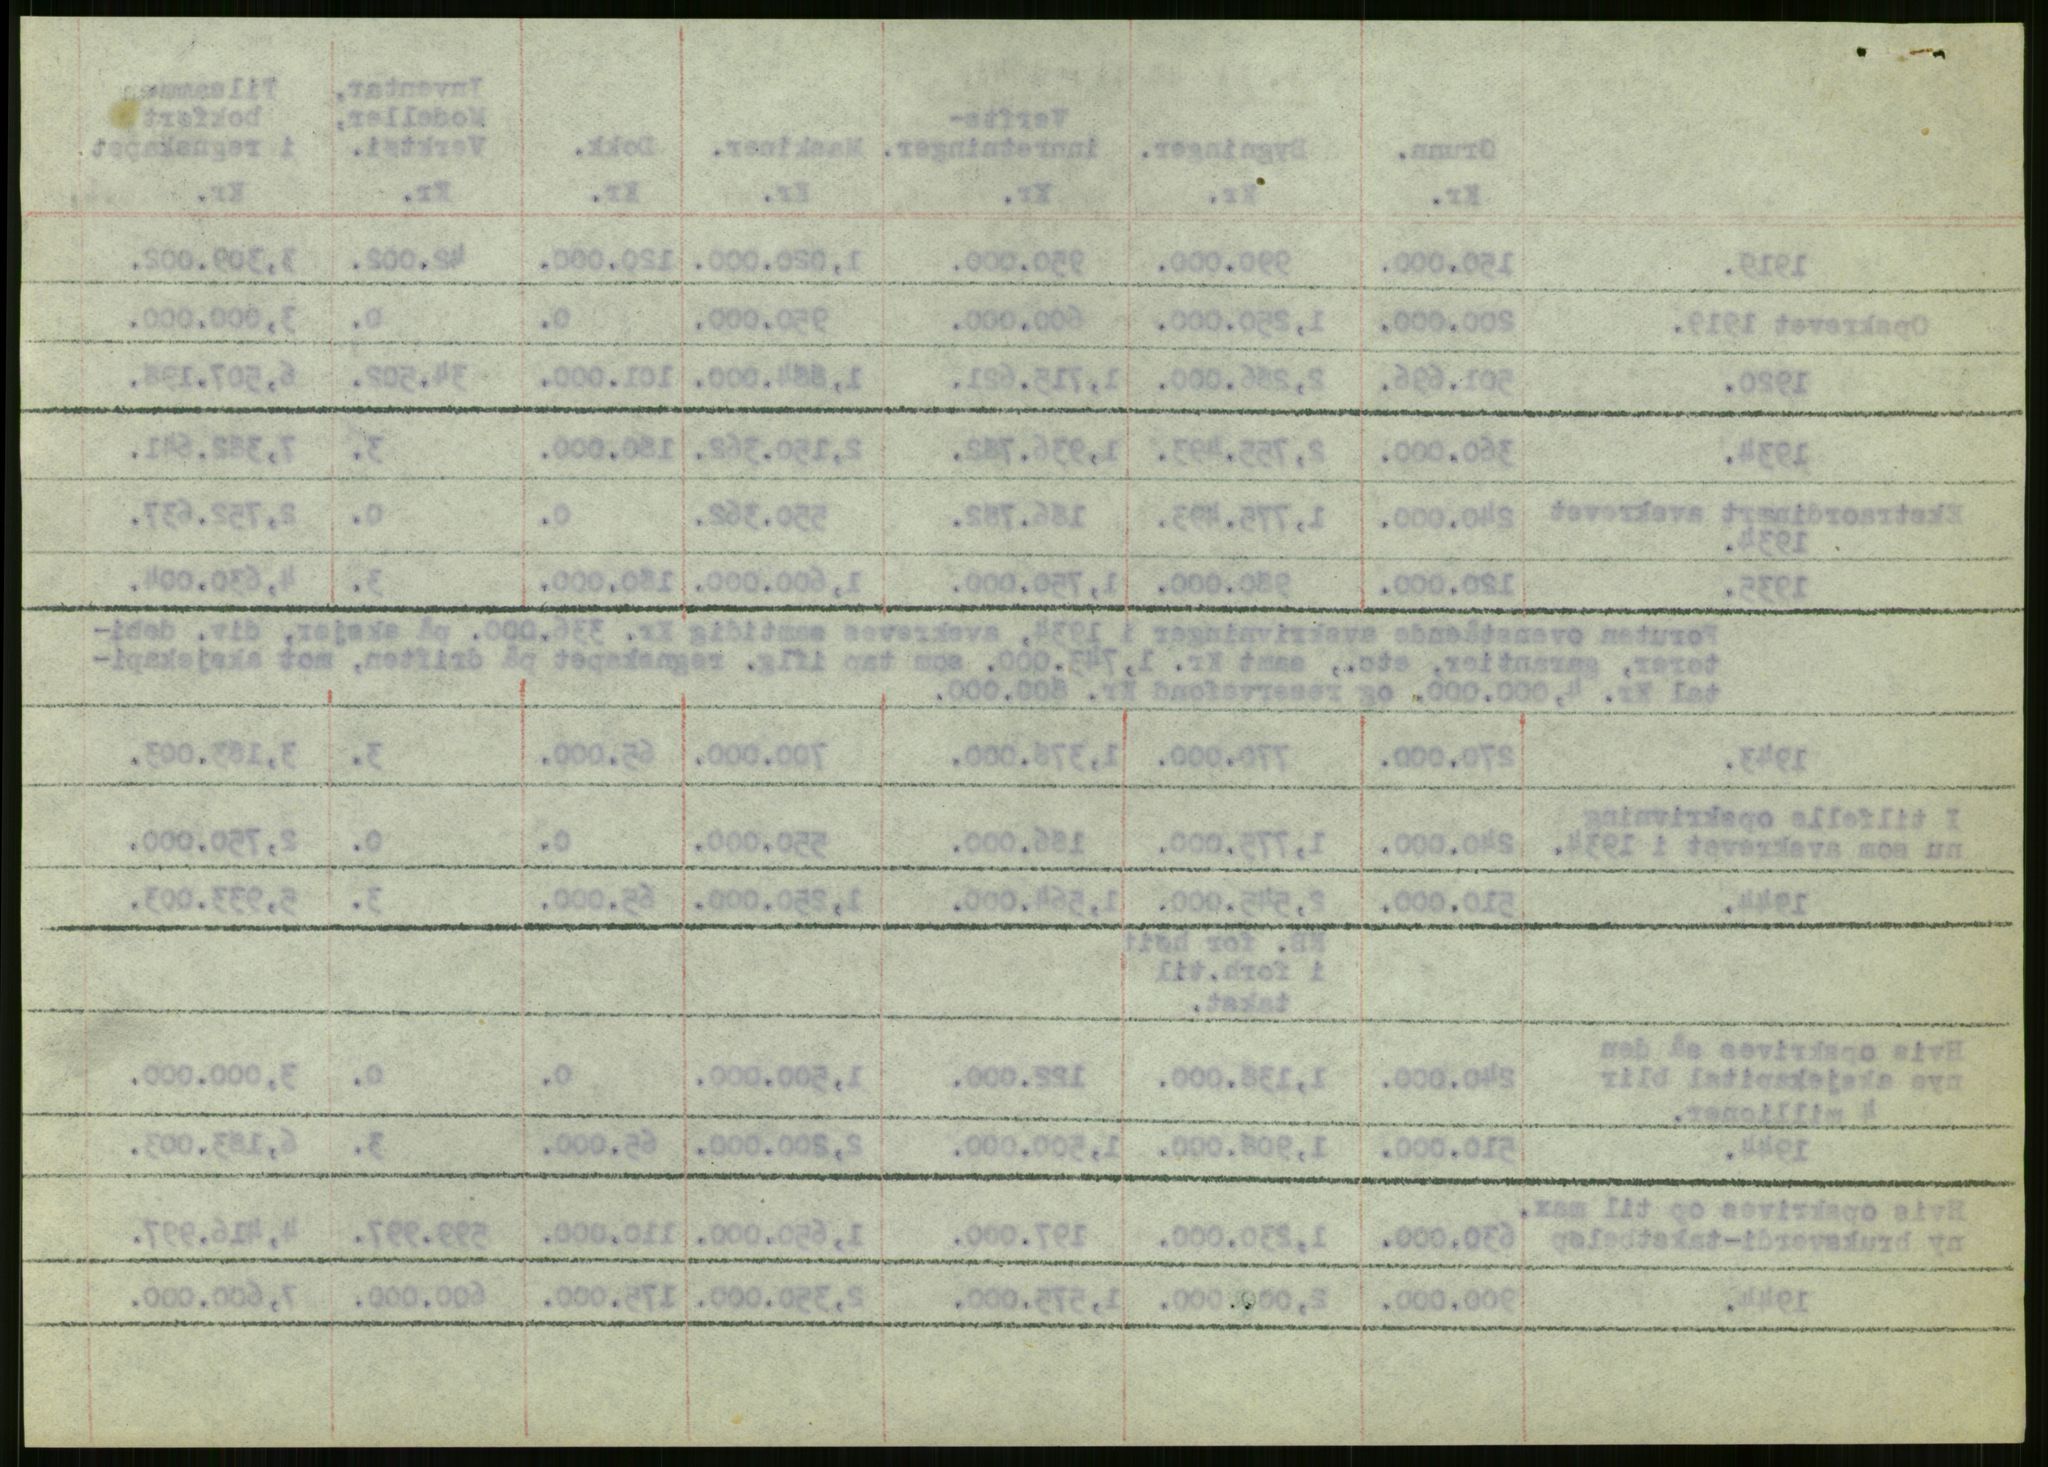 Grunn. Bygninger. Verfts-innretninger. Maskiner. Dokk. Inventar, Modeller, Verktøi. Tilsammen bokført i regnskapet
Kr. Kr. Kr. Kr. Kr. Kr. Kr.
1919. 150.000. 990.000. 950.000. 1,020.000. 120.000. 42.002. 3,309.002.
Opskrevet 1919. 200.000. 1,250.000. 600.000. 950.000. 0. 0. 3,000.000.
1920. 501.696. 2,286.000. 1,715.621. 1,884.000. 101.000. 34.502. 6,507.198.
1934. 360.000. 2,755.493. 1,936.782. 2,150.362. 180.000. 3. 7,382.641.
Ekstraordinært avskrevet
1934. 240.000. 1,775.493. 186.782. 550.362. 0. 0. 2,752.637.
1935. 120.000. 980.000. 1,750.000. 1,600.000. 180.000. 3. 4,630.004.
Foruten ovenstående avskrivninger i 1934, avskreves samtidig Kr. 336.000. på aksjer, div. debi-
torer, garantier, etc., samt Kr. 1,743.000. som tap iflg. regnskapet på driften, mot aksjekapi-
tal Kr. 4,000.000. og reservefond Kr. 800.000.
1943. 270.000. 770.000. 1,378.000. 700.000. 65.000. 3. 3,183.003.
I tilfelle opskrivning
nu som avskrevet i 1934. 240.000. 1,775.000. 186.000. 550.000. 0. 0. 2,750.000.
1944. 510.000. 2,545.000. 1,564.000. 1,250.000. 65.000. 3. 5,933.003.
NB. for høit
i forh.til
takst.
Hvis opskrives så den
nye aksjekapital blir 240.000. 1,138.000. 122.000. 1,500.000. 0. 0. 3,000.000.
4 millioner.
1944. 510.000. 1,908.000. 1,500.000. 2,200.000. 65.000. 3. 6,183.003.
Hvis opskrives op til max.
ny bruksverdi-takstbeløp 630.000. 1,230.000. 197.000. 1,650.000. 110.000. 599.997. 4,416.997.
1944. 900.000. 2,000.000. 1,575.000. 2,350.000. 175.000. 600.000. 7,600.000.